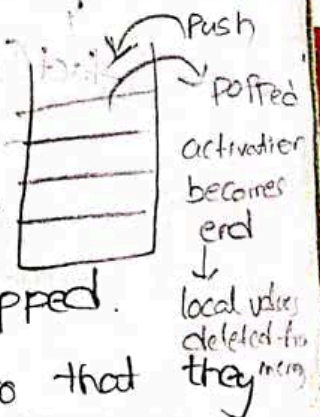 push
popped
activation
becomes
end
local values
deleted
pped.
o that they